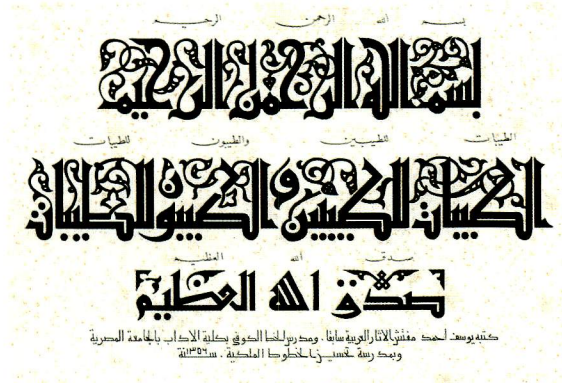 بسم الله الرحمن الرحيم
بسم الله الرحمن الرحيم
الطيبات للطيبين والطيبون للطيبات
الطيبات للطيبين والطيبون للطيبات
صدق الله العظيم
صدق الله العظيم
كتبه يوسف احمد مفتش الاثار العربية سابقا . ومدرس الخط الكوفي بكلية الاداب بالجامعة المصرية
وبمدرسة تحسين الخطوط الملكية . سنة ١٣٥٦